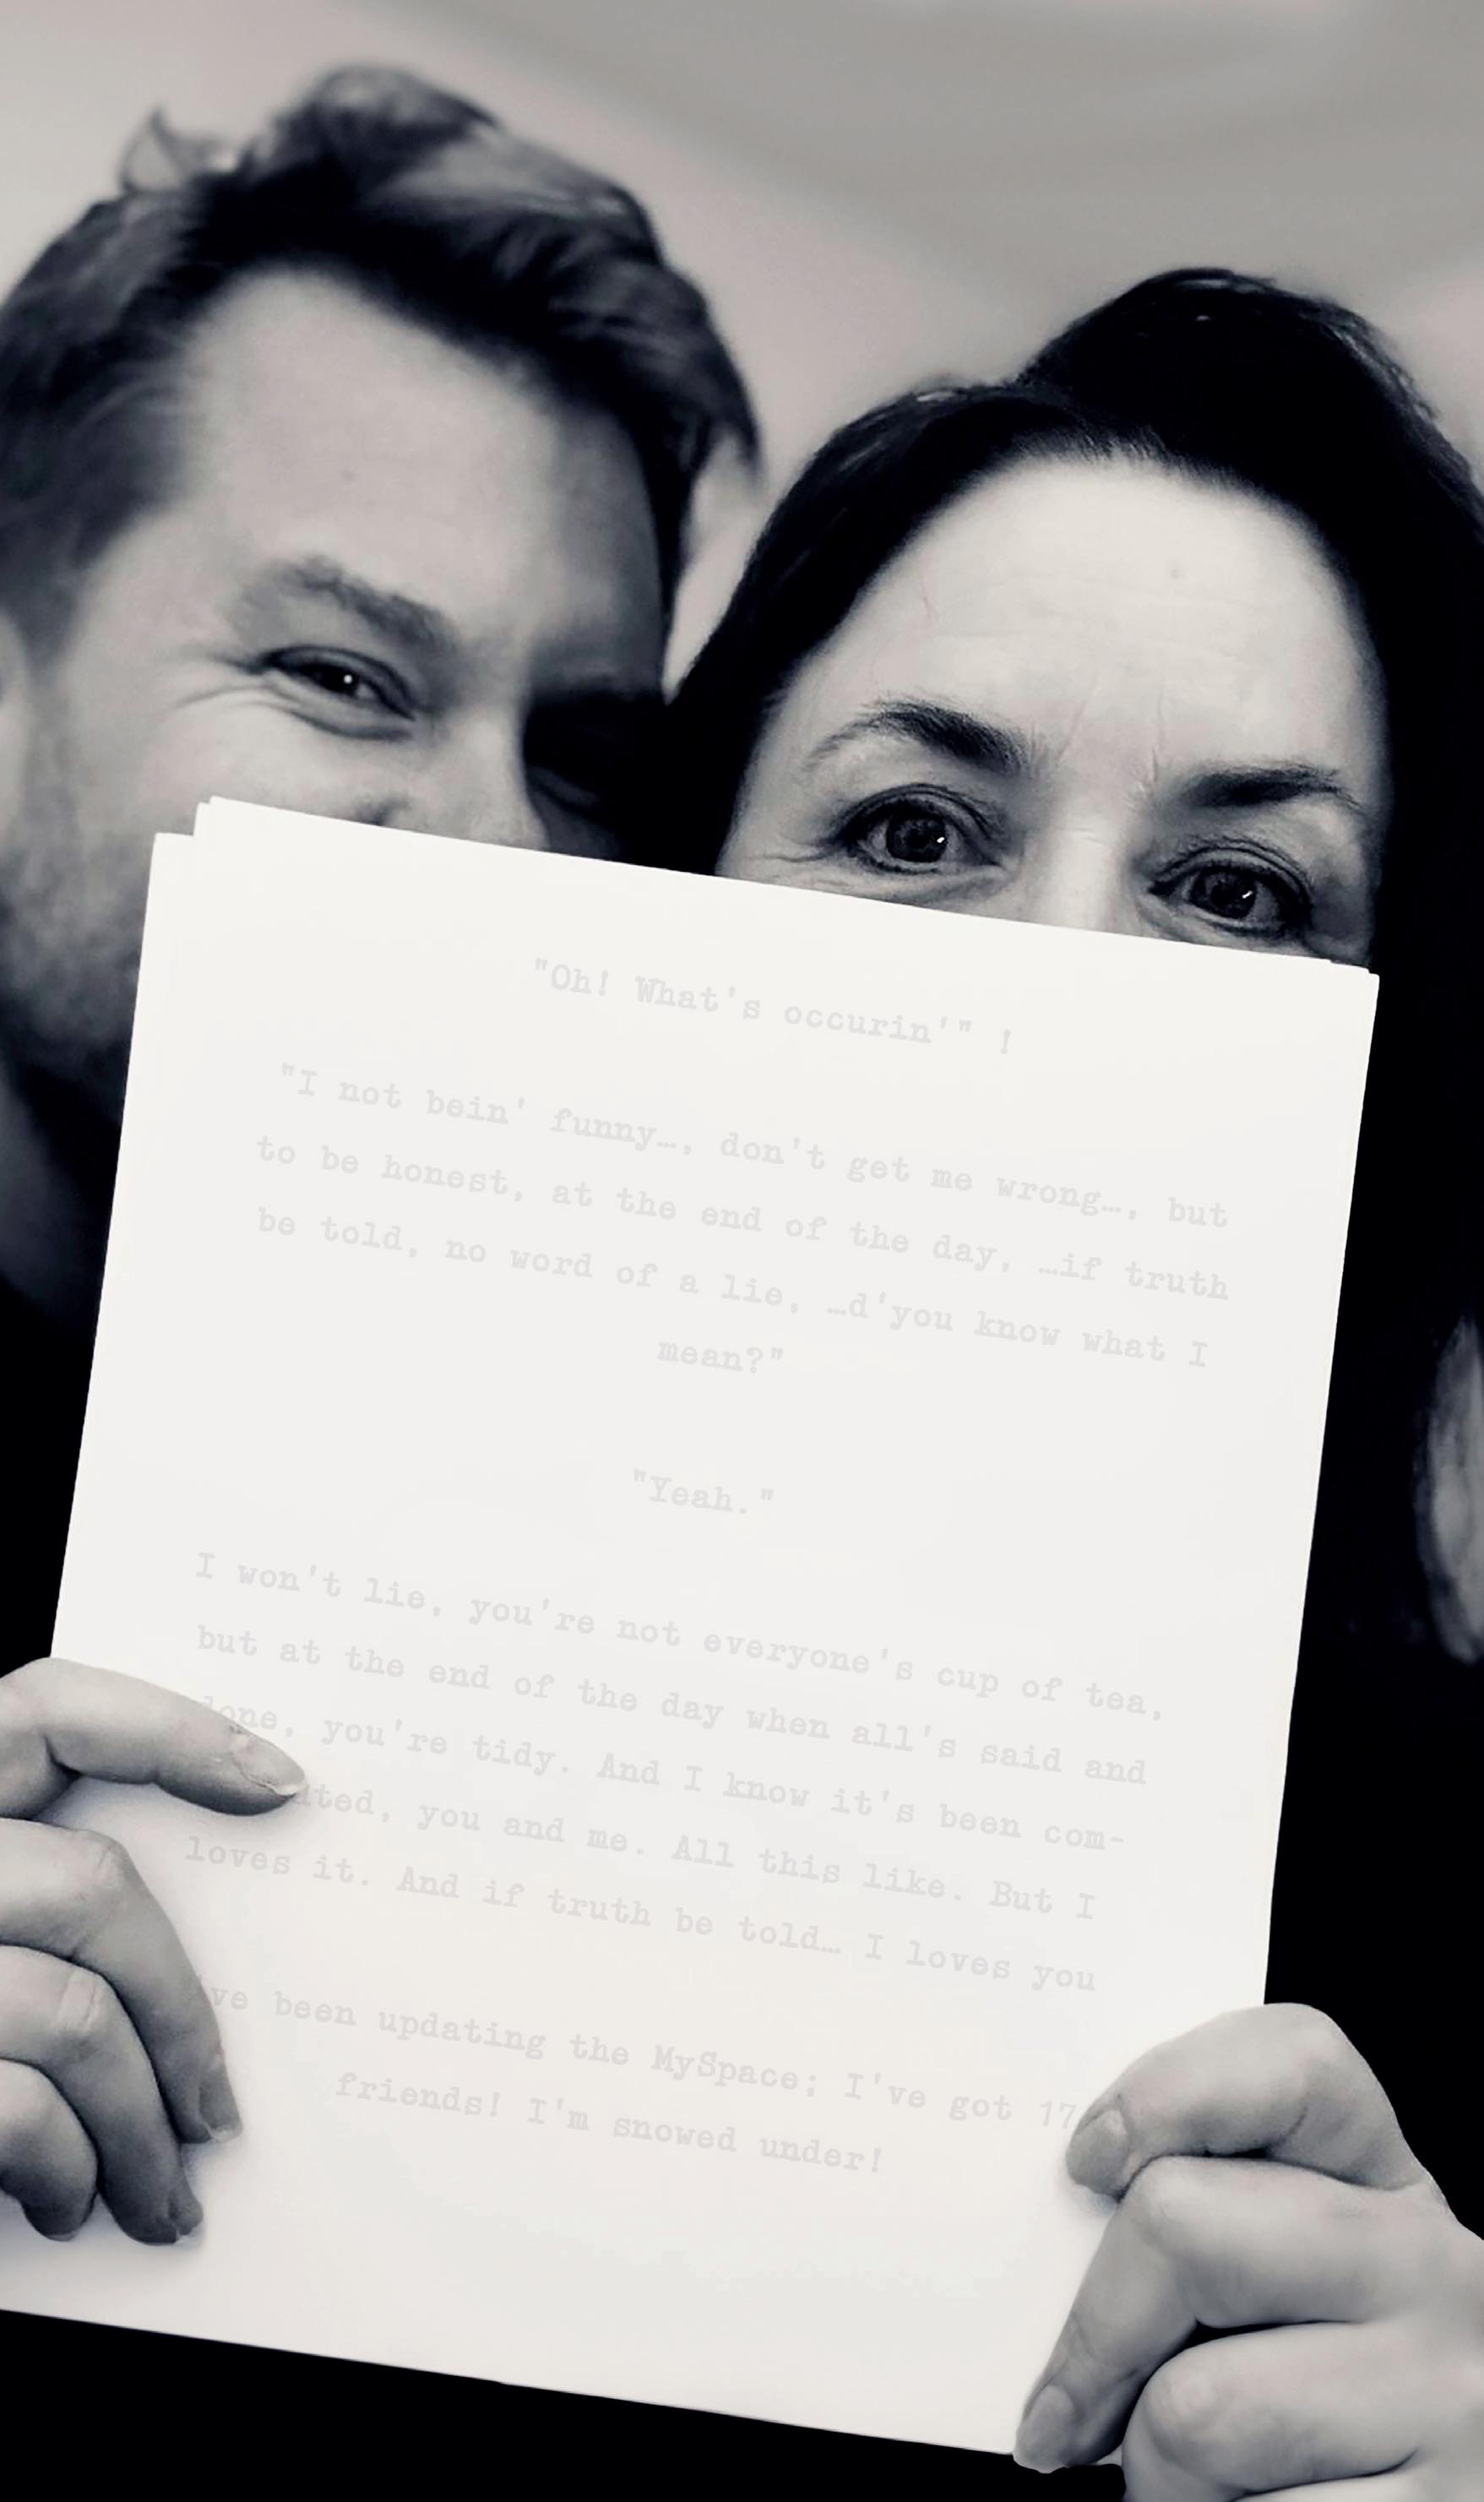 "Oh! What's occurin'" !
"I not bein' funny…, don't get me wrong…, but
to be honest, at the end of the day, …if truth
be told, no word of a lie, …d'you know what I
mean?"
"Yeah."
I won't lie, you're not everyone's cup of tea,
but at the end of the day when all's said and
you're tidy. And I know it's been com-
you and me. All this like. But I
loves it. And if truth be told… I loves you
been updating the MySpace; I've got 17
friends! I'm snowed under!